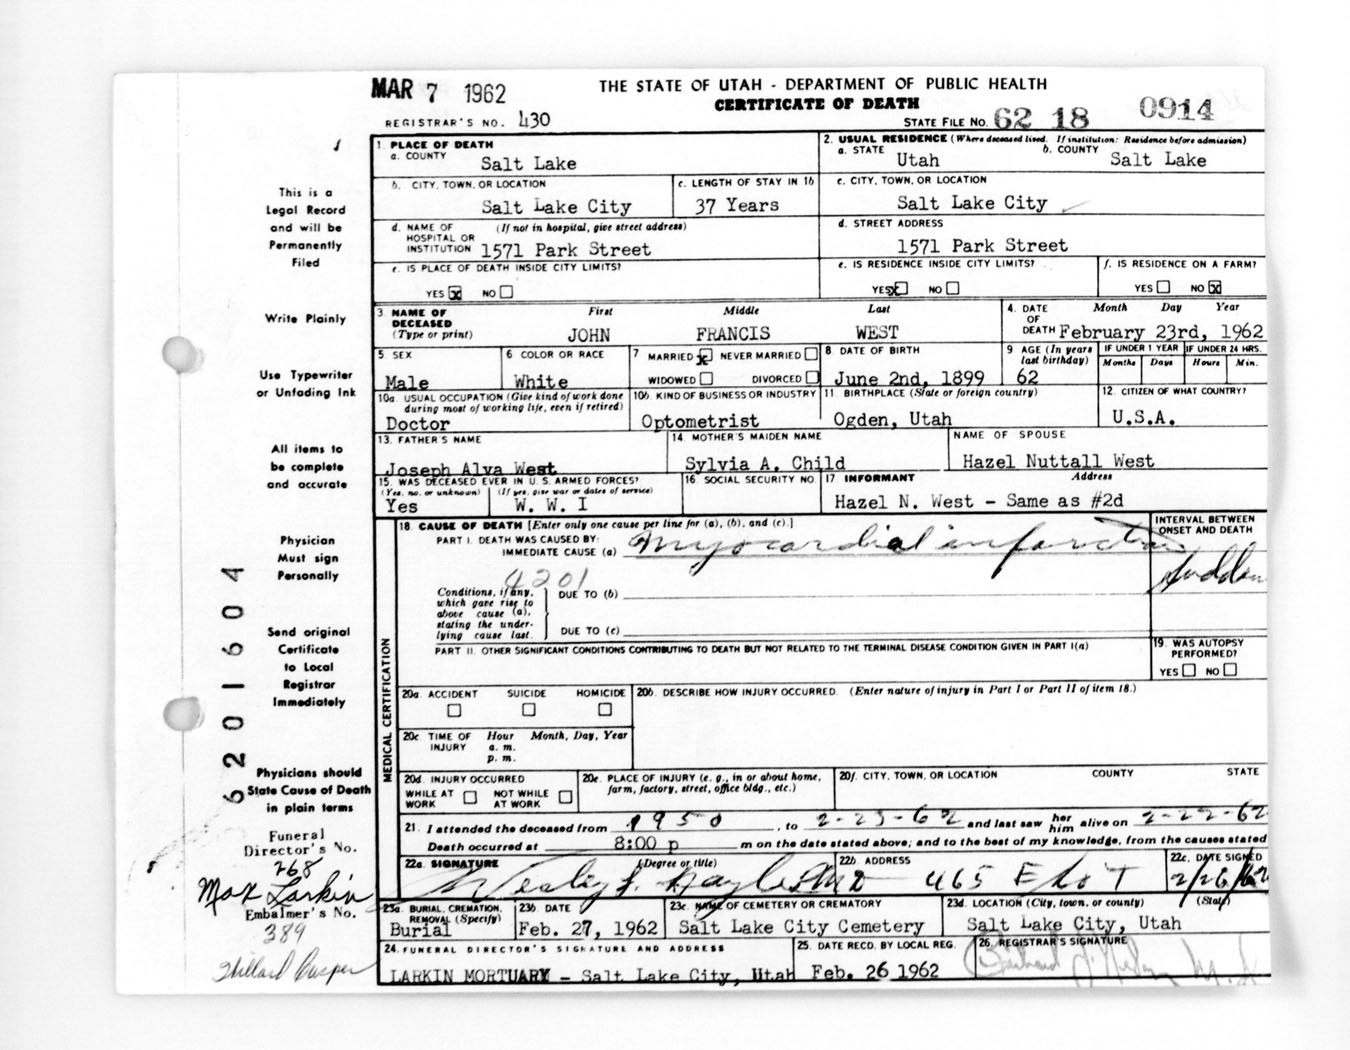 MAR 7 1962
THE STATE OF UTAH - DEPARTMENT OF PUBLIC HEALTH
CERTIFICATE OF DEATH
REGISTRAR'S NO. 430
STATE FILE NO. 62 18 0914
This is a
Legal Record
and will be
Permanently
Filed
Write Plainly
Use Typewriter
or Unfading Ink
All items to
be complete
and accurate
Physician
Must sign
Personally
Send original
Certificate
to Local
Registrar
Immediately
Physicians should
State Cause of Death
in plain terms
Funeral
Director's No.
268
Max Larkin
Embalmer's No.
389
6201604
1. PLACE OF DEATH
a. COUNTY Salt Lake
2. USUAL RESIDENCE (Where deceased lived. If institution: Residence before admission)
a. STATE Utah b. COUNTY Salt Lake
b. CITY, TOWN, OR LOCATION Salt Lake City
c. LENGTH OF STAY IN 1b 37 Years
c. CITY, TOWN, OR LOCATION Salt Lake City
d. NAME OF HOSPITAL OR INSTITUTION (If not in hospital, give street address) 1571 Park Street
d. STREET ADDRESS 1571 Park Street
e. IS PLACE OF DEATH INSIDE CITY LIMITS? YES X NO
e. IS RESIDENCE INSIDE CITY LIMITS? YES X NO
f. IS RESIDENCE ON A FARM? YES NO X
3. NAME OF DECEASED (Type or print) First Middle Last
JOHN FRANCIS WEST
4. DATE OF DEATH Month Day Year February 23rd, 1962
5 SEX Male
6 COLOR OR RACE White
7 MARRIED X NEVER MARRIED
WIDOWED DIVORCED
8 DATE OF BIRTH June 2nd, 1899
9 AGE (In years last birthday) 62
IF UNDER 1 YEAR Months Days
IF UNDER 24 HRS. Hours Min.
10a. USUAL OCCUPATION (Give kind of work done during most of working life, even if retired) Doctor
10b. KIND OF BUSINESS OR INDUSTRY Optometrist
11 BIRTHPLACE (State or foreign country) Ogden, Utah
12. CITIZEN OF WHAT COUNTRY? U.S.A.
13. FATHER'S NAME Joseph Alva West
14 MOTHER'S MAIDEN NAME Sylvia A. Child
NAME OF SPOUSE Hazel Nuttall West
15. WAS DECEASED EVER IN U.S. ARMED FORCES?
(Yes, no, or unknown) (If yes, give war or dates of service)
Yes W. W. I
16 SOCIAL SECURITY NO.
17. INFORMANT Address
Hazel N. West - Same as #2d
MEDICAL CERTIFICATION
18 CAUSE OF DEATH [Enter only one cause per line for (a), (b), and (c).]
PART I. DEATH WAS CAUSED BY:
IMMEDIATE CAUSE (a) Myocardial infarction
INTERVAL BETWEEN ONSET AND DEATH
Sudden
4201
Conditions, if any, which gave rise to above cause (a), stating the underlying cause last.
DUE TO (b)
DUE TO (c)
PART II. OTHER SIGNIFICANT CONDITIONS CONTRIBUTING TO DEATH BUT NOT RELATED TO THE TERMINAL DISEASE CONDITION GIVEN IN PART I(a)
19. WAS AUTOPSY PERFORMED?
YES NO
20a. ACCIDENT SUICIDE HOMICIDE
20b. DESCRIBE HOW INJURY OCCURRED. (Enter nature of injury in Part I or Part II of item 18.)
20c. TIME OF INJURY Hour Month, Day, Year
a. m.
p. m.
20d. INJURY OCCURRED
WHILE AT WORK NOT WHILE AT WORK
20e. PLACE OF INJURY (e. g., in or about home, farm, factory, street, office bldg., etc.)
20f. CITY, TOWN, OR LOCATION COUNTY STATE
21. I attended the deceased from 1950, to 2-23-62 and last saw her him alive on 2-22-62
Death occurred at 8:00 p m on the date stated above; and to the best of my knowledge, from the causes stated
22a. SIGNATURE (Degree or title)
Wesley
22b. ADDRESS 465 E
22c. DATE SIGNED 2/26/62
23a. BURIAL, CREMATION, REMOVAL (Specify) Burial
23b. DATE Feb. 27, 1962
23c. NAME OF CEMETERY OR CREMATORY Salt Lake City Cemetery
23d. LOCATION (City, town, or county) (State)
Salt Lake City, Utah
24. FUNERAL DIRECTOR'S SIGNATURE AND ADDRESS
LARKIN MORTUARY - Salt Lake City, Utah
25. DATE RECD. BY LOCAL REG. Feb. 26 1962
26. REGISTRAR'S SIGNATURE